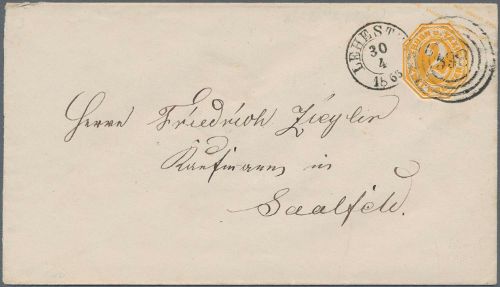 LEHEST
30
4
1863
Herrn Friedrich Ziegler
Kaufmann in
Saalfeld.